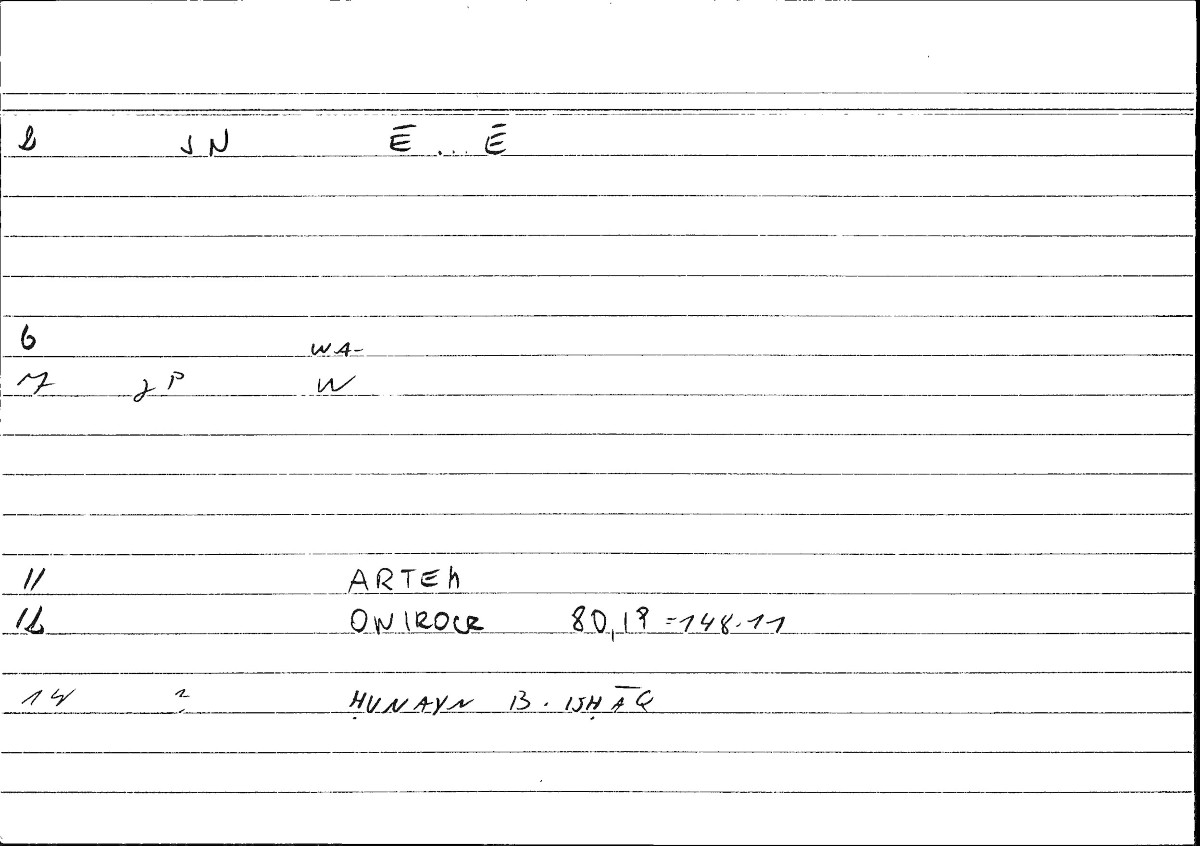 2 JN Ē ... Ē
6 WA-
7 2P W
11 ARTEM
12 ONIROCR 80,18 = 148.11
14 ? ḤUNAYN B. ISḤĀQ